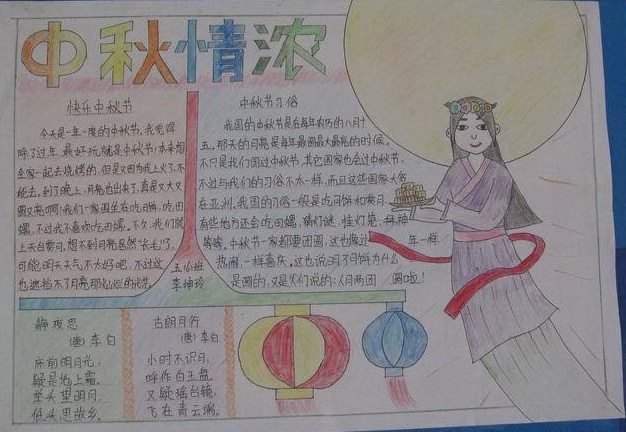 中秋情浓
快乐中秋节
今天是一年一度的中秋节,我觉得
除了过年,最好玩就是中秋节!本来想
全家一起去烧烤的,但是又因为我上火了,不
能去。到了晚上,月亮也出来了,真是又大又
圆又亮啊!我们一家围坐在吃月饼、吃田
螺,不过我不喜欢吃田螺。不久,我们就
上天台赏月,想不到月亮居然“长毛”了,
可能明天天气不太好吧,不过这
也遮挡不了月亮那灿烂的光茫。
五(6)班
李坤玲
中秋节习俗
我国的中秋节是在每年农历的八月十
五,那天的月亮是每年最圆最大最亮的时候。
不只是我们国过中秋节,其它国家也会过中秋节,
不过与我们的习俗不太一样,而且这些国家大多
在亚洲。我国的习俗一般是吃月饼和赏月
有些地方还会吃田螺、猜灯谜、挂灯笼、拜神
等等。中秋节一家都要团圆,这也像过年一样
热闹,一样喜庆。这也说明了月饼为什么
是圆的,又是人们说的:人月两团圆啦!
静夜思
(唐) 李白
床前明月光,
疑是地上霜。
举头望明月,
低头思故乡。
古朗月行
(唐) 李白
小时不识月,
呼作白玉盘。
又疑瑶台镜,
飞在青云端。